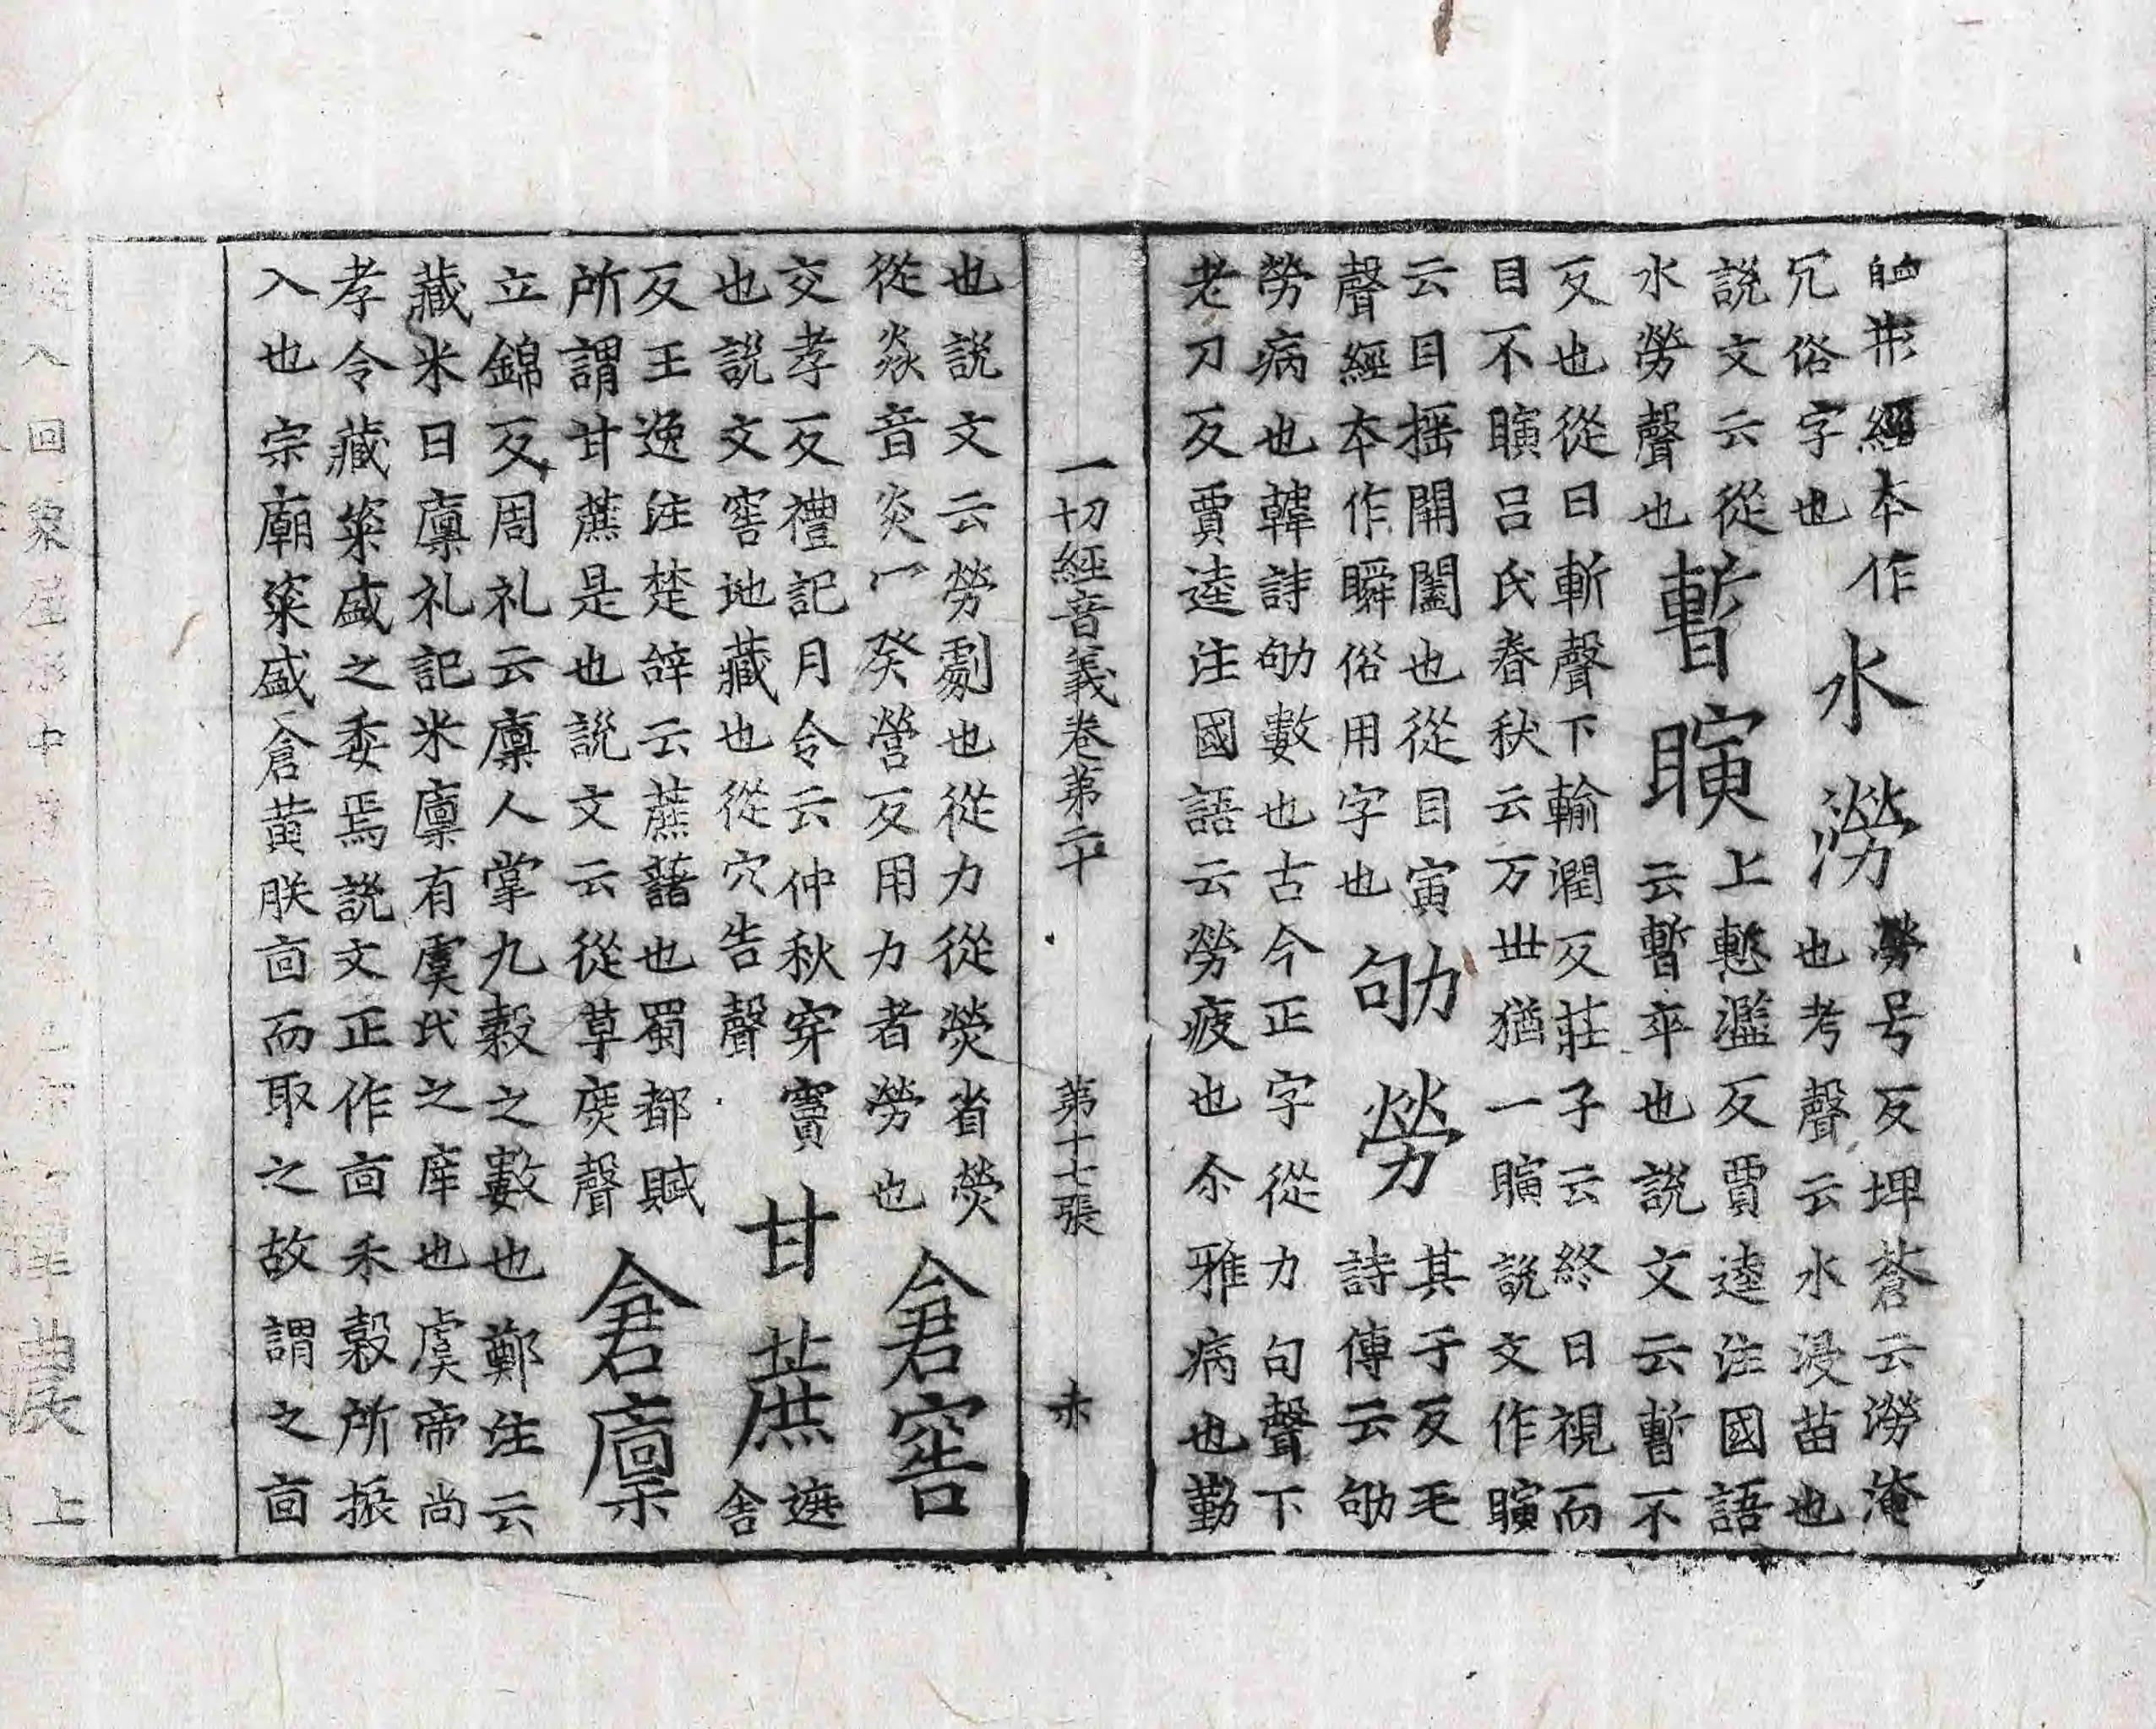 經本作
冗俗字也
水澇
勞号反埤蒼云澇淹
也考聲云水浸苗也
說文云從
水勞聲也
暫瞚
上慙濫反賈逵注國語
云暫卒也說文云暫不
反也從日斬聲下輸潤反莊子云終日視而
目不瞚呂氏春秋云万世猶一瞚說文作瞚
云目揺開闔也從目寅
聲經本作瞬俗用字也
劬勞
其于反毛
詩傳云劬
勞病也韓詩劬數也古今正字從力句聲下
老刀反賈逵注國語云勞疲也尒雅病也勤
一切經音義卷第二十 第十七張 赤
也說文云勞劇也從力從熒省熒
從焱音炎冖癸營反用力者勞也
倉窖
交孝反禮記月令云仲秋穿竇
也說文窖地藏也從穴告聲
甘蔗
遮
舍
反王逸注楚辝云蔗藷也蜀都賦
所謂甘蔗是也說文云從草庶聲
倉廩
立錦反周礼云廩人掌九穀之數也鄭注云
藏米曰廩礼記米廩有虞氏之庠也虞帝尚
孝令藏粢盛之委焉說文正作㐭禾穀所振
入也宗廟粢盛倉黄朕㐭而取之故謂之㐭